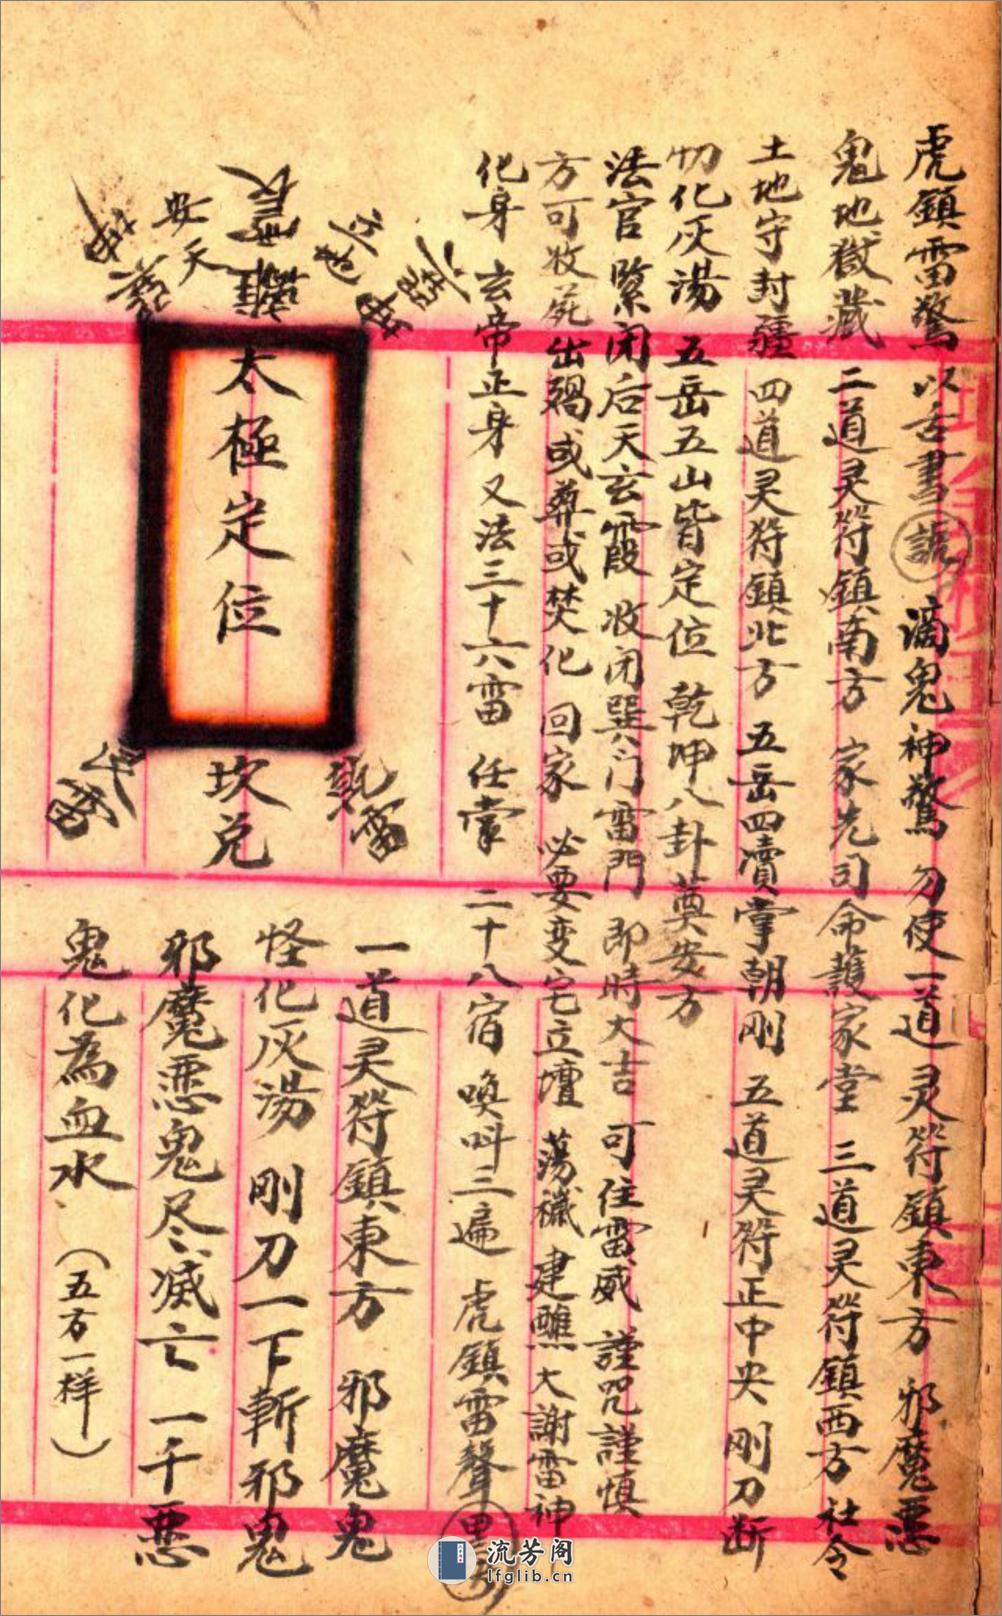 虎鎮雷驚 以舌書 滴鬼神驚 勿使一道灵符鎮東方 邪魔惡
鬼地獄藏 二道灵符鎮南方 家先司命護家堂 三道灵符鎮西方 社令
土地守封疆 四道灵符鎮北方 五岳四瀆掌朝剛 五道灵符正中央 刚刀断
切化灰湯 五岳五山皆定位 乾坤八卦奠安方
法官緊闭后天玄霞 收闭巽门雷門 即時大吉 可住雷威 謹咒謹慎
方可收 出殃或葬或焚化 回家 必要变宅立壇 蕩穢建醮大謝雷神
化身 玄帝正身 又法三十六雷 任掌 二十八宿 喚呌三遍 虎鎮雷聲
安天
太極定位
坎兑
一道灵符鎮東方 邪魔鬼
怪化灰湯 刚刀一下斬邪鬼
邪魔惡鬼尽灭亡 一千惡
鬼化為血水 （五方一样）
流芳阁
lfglib.cn